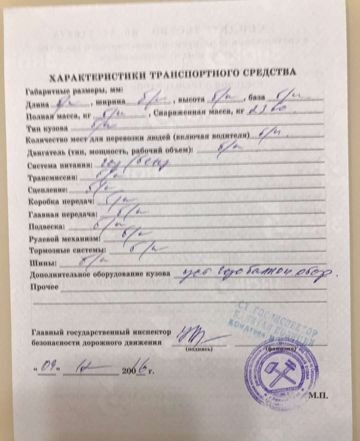 ХАРАКТЕРИСТИКИ ТРАНСПОРТНОГО СРЕДСТВА
Габаритные размеры, мм:
Длина б/и, ширина б/и, высота б/и, база б/и
Полная масса, кг б/и, Снаряженная масса, кг
Тип кузова б/и
Количество мест для перевозки людей (включая водителя) б/и
Двигатель (тип, мощность, рабочий объем): б/и
Система питания: газ/бенз
Трансмиссия: б/и
Сцепление: б/и
Коробка передач: б/и
Главная передача: б/и
Подвеска: б/и
Рулевой механизм: б/и
Тормозные системы: б/и
Шины: б/и
Дополнительное оборудование кузова уст газобаллон обор.
Прочее
СТ ГОСИНСПЕКТОР
Главный государственный инспектор
безопасности дорожного движения
(подпись)
(фамилия)
"09" 200 г.
М.П.